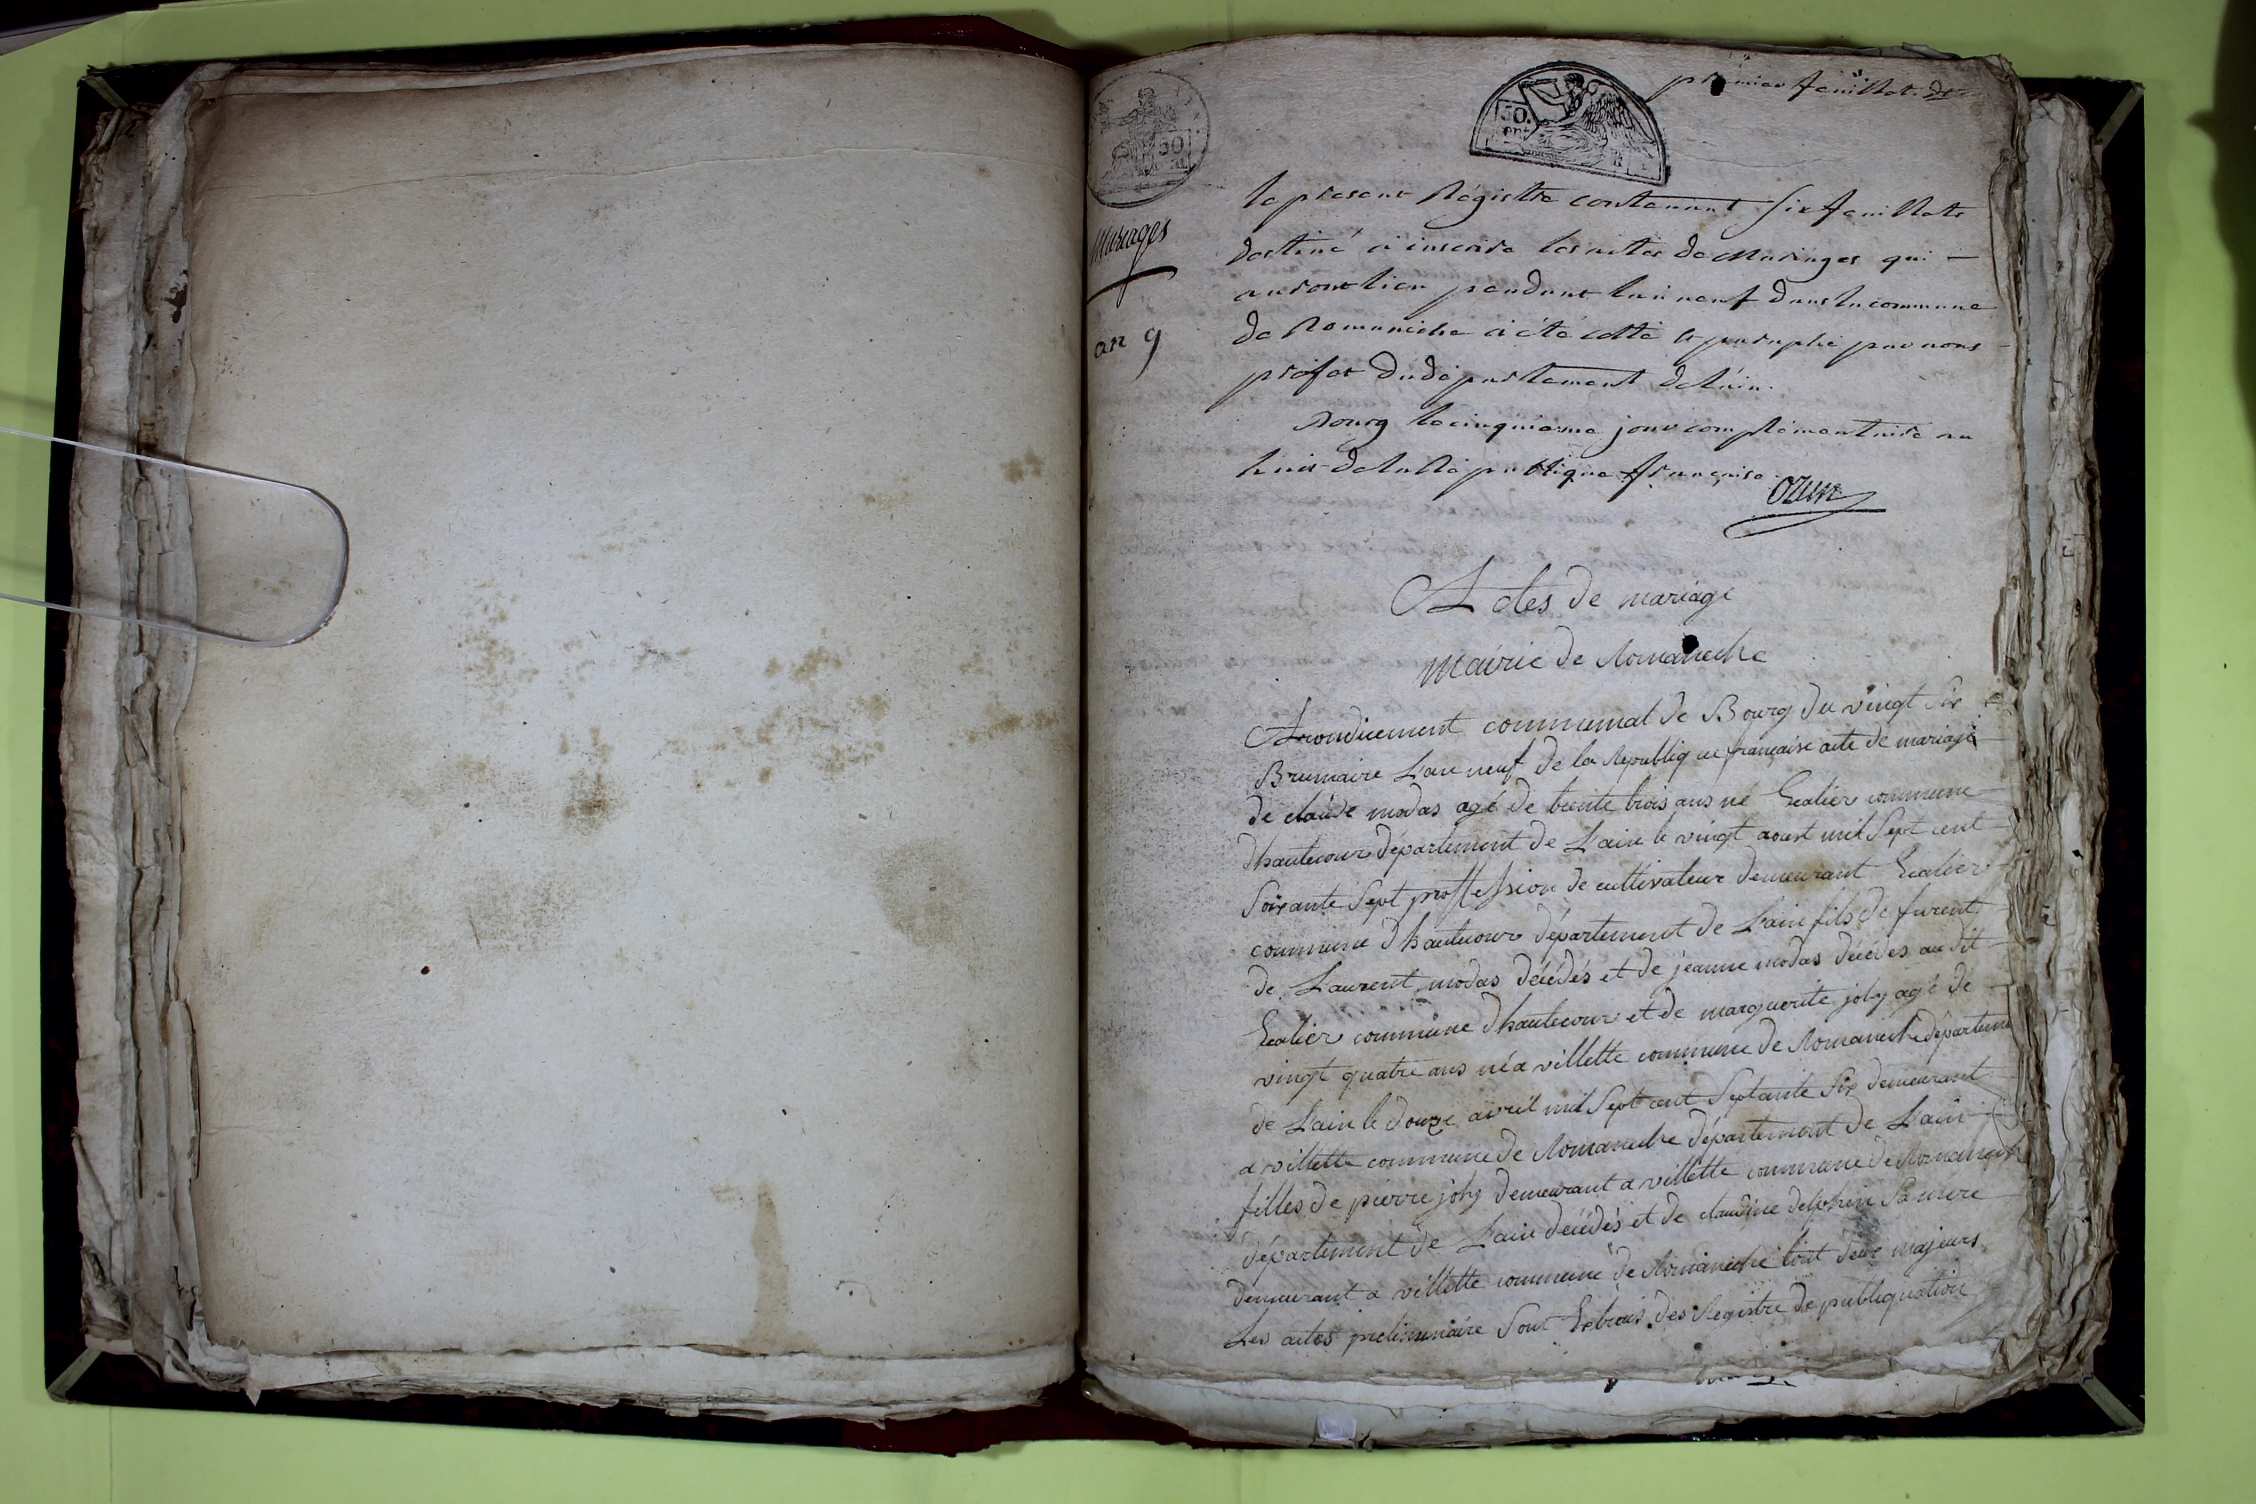 premier feuillet
50.
50
Mariages
an 9
le present Régistre contenant six feuillets
destiné a inscrire les actes de Mariages qui
auront lieu pendant l'an neuf dans la commune
de Romaneche a été cotté et paraphé par nous
préfet du département de l'ain.
Bourg le cinquième jour complémentaire an
huit de la République française.
Ozun
Actes de mariage
Mairie de Romaneche
Arrondicement communal de Bourg du vingt six
Brumaire L'an neuf de la Republique française acte de mariage
de claude modas agé de trente trois ans né commune
dhautecour département de L'ain le vingt aoust mil sept cent
soixante sept proffession de cultivateur demeurant
commune dhautecour département de L'ain fils de furent
de Laurent modas décédés et de jeanne modas décédés au dit
commune dhautecour et de marguerite joly agé de
vingt quatre ans né a villette commune de Romaneche départeme
de L'ain le douze avril mil sept cent septante six demeurant
a villette commune de Romaneche département de L'ain
filles de pierre joly demeurant a villette commune de Romaneche
département de L'ain décédés et de claudine delphin sa mere
demeurant a villette commune de Romaneche tout deux majeurs
Les actes preliminaire sont Extrais des Registre de publiquation